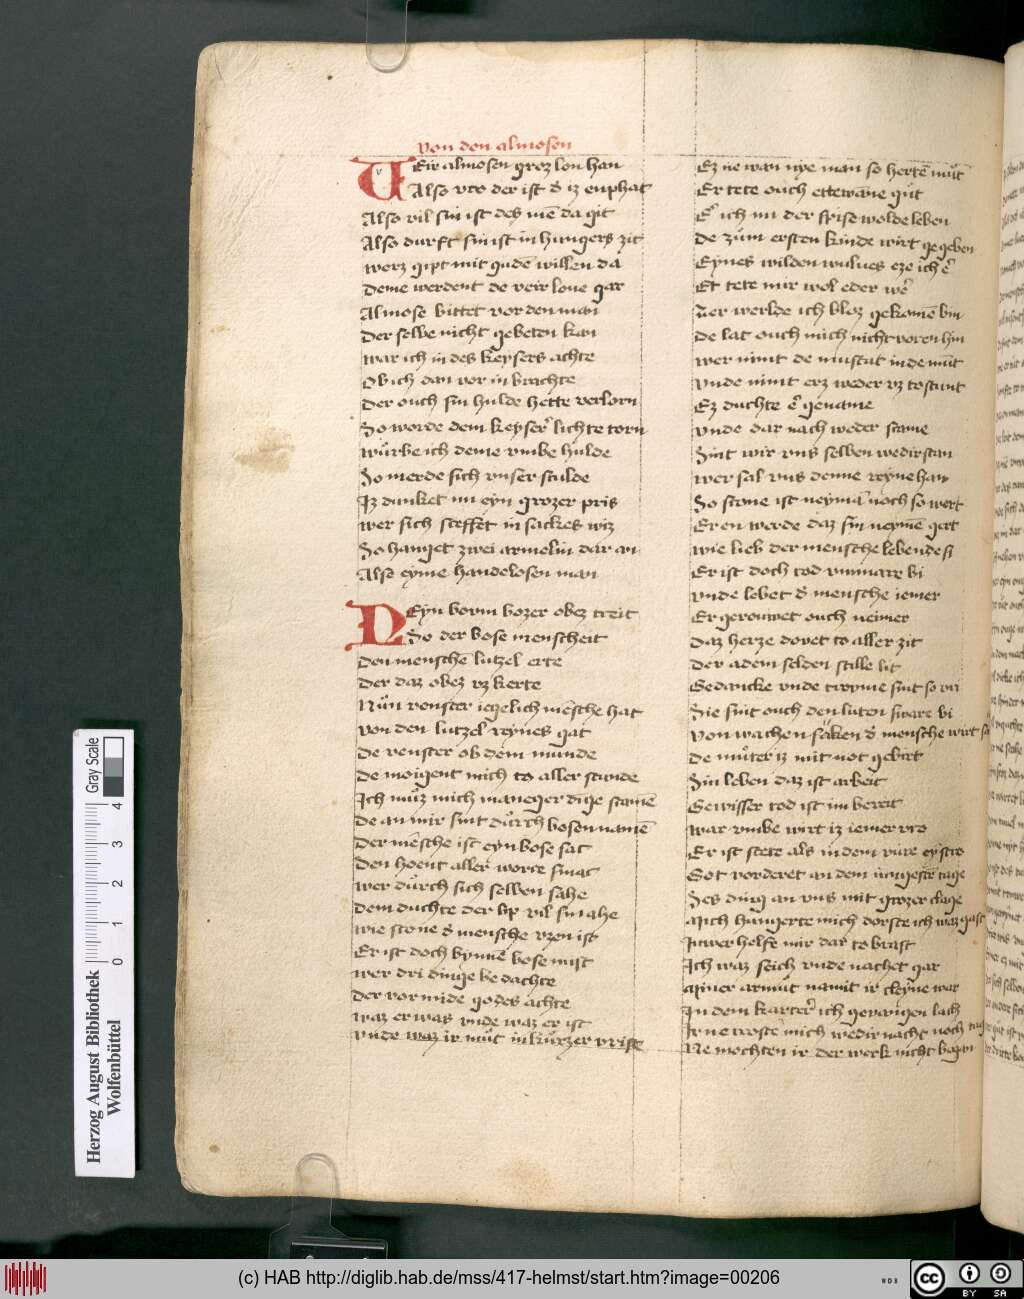 von den almosen
Veir almosen groz lon han
Also vro der ist d̕ iz enphat
Also vil sin ist des mē da git
Also durft sin ist in hungers zit
werz gipt mit gudē willen da
Deme werdent de veir lone gar
Almose bittet vor den man
Der selbe nicht gebeten kan
war ich in des keysers achte
Ob ich dan vor in brachte
Der ouch sin hulde hette verlorn
So worde dem keyser̕ lichte torn
wůrbe ich deme vmbe hulde
So merde sich vnser sculde
Iz dunket mi eyn grozer pris
wer sich steffet in sackes wiz
So hanget zwei armelin dar an
Also eyme handelosen man
Deyn borm bozer obez treit
So der bose menscheit
Den menschē lutzel erte
Der daz obez vz kerte
Nůn venster iegelich mēsche hat
von den lutzel reynes gat
De venster ob dem munde
De moigent mich to aller stunde
Ich můz mich maneger dige scamē
De an mir sint důrch bosen namē
Der mēsche ist eyn bose sac
Den hoent aller worte smac
wer důrch sich selben sahe
Dem duchte der lip vil smahe
wie scone d̕ mensche vzen ist
Er ist doch bynnē bose mist
wer dri dinge bedachte
Der vormide godes achte
waz er was vnde waz er ist
vnde waz ir můt in kůrzer vriste
Ez ne wan nye man so hertē můt
Er tete ouch ettewane gůt
E̕ ich mi der spise wolde leben
De zům ersten kinde wirt gegeben
Eynes wilden wulues eze ich e̕
Et tete mir wol eder we̕
Zer werlde ich bloz gekomē bin
De lat ouch mich nicht voren hin
wer nimt de muscat in de mūt
vnde nimt erz weder vz tostunt
Ez duchte e̕ gename
vnde dar nach weder scame
Sint wir vns selben wedirstan
wer sal vns denne reyne han
So scone ist neymā noch so wert
Er en werde daz sin neymē gert
wie lieb der mensche lebende si
Er ist doch tod vnmarr bi
vnde lebet d̕ mensche iemer
Er gerouwet ouch neimer
Daz herze dovet to aller zit
Der adem selden stille lit
Gedancke vnde troyme sint so vri
Sie sint ouch den luten sware bi
von wachen sůken d̕ mensche wirt
De můter iz mit not gebirt
Sin leben daz ist arbeit
Gewisser tod ist im bereit
war vmbe wirt iz iemer vro
Er ist stete als in dem vure eystro
Got vorderet an dem iungestē tage
Ses ding an vns mit grozer clage
Mich hungerte mich dorste ich waz gast
Iuwer helfe mir dar to brast
Ich waz seich vnde nachet gar
Miner armůt namit ir cleyne war
In dem karker̕ ich gevangen lach
Ir ne troste mich wedir nacht noch tag
Ne mochten ir der werk nicht began
Herzog August Bibliothek
Wolfenbüttel
Gray Scale
0 1 2 3 4
(c) HAB http://diglib.hab.de/mss/417-helmst/start.htm?image=00206
WDB
cc BY SA